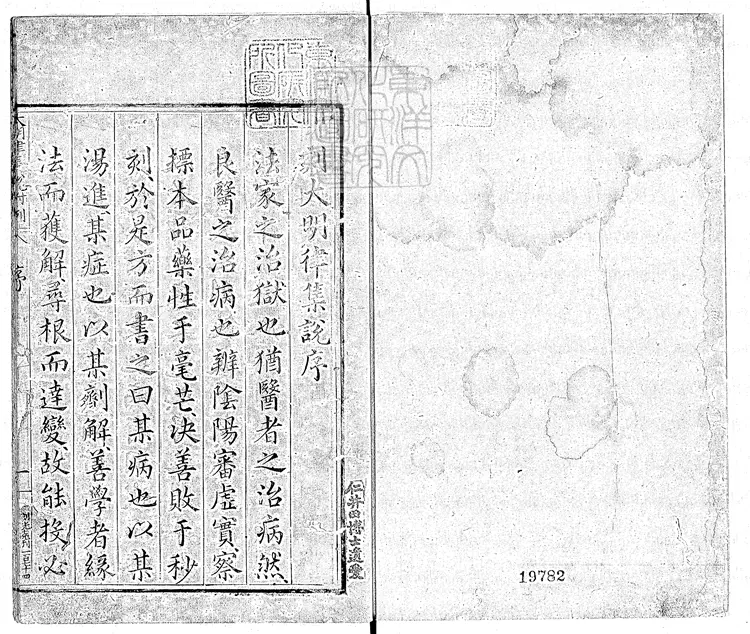 刻大明律集說序
法家之治獄也猶醫者之治病然
良醫之治病也辦陰陽審虛實察
摽本品藥性于毫芒決善敗于秒
刻於是方而書之曰某病也以某
湯進某症也以某劑解善學者緣
法而獲解尋根而達變故能投必
序
仁井田博士遺愛
19782